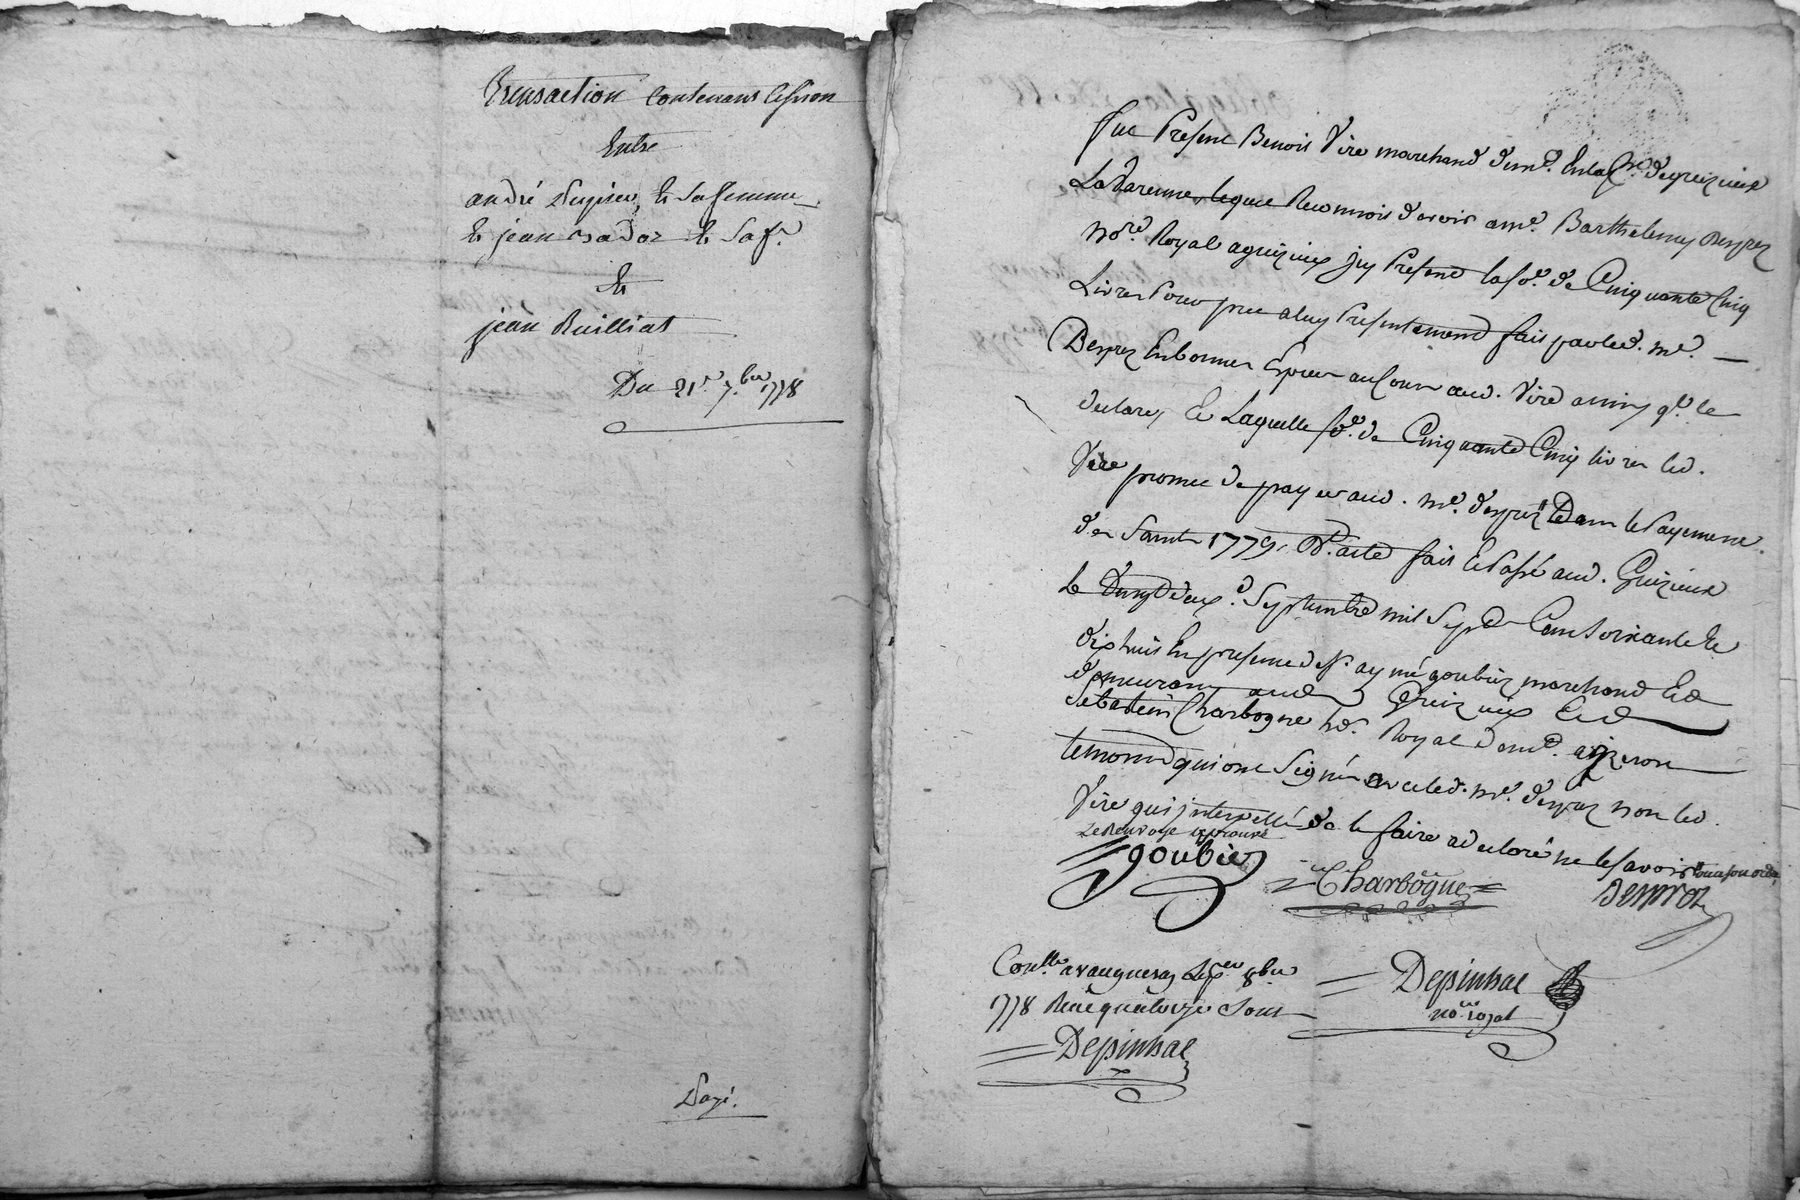 Transaction Contenant Cession
Entre
andré Dupin et Sa femme
et jean nadaz et Sa fe.
Et
jean Ruilliat
Du 21e. 7.bre 1778
Payé.
fut Present Benoit Vire marchand demt. En la parsse. de grezieux
La Varenne lequel Reconnoit devoir a me. Barthelemy Desprez
nore. Royal a grezieux jcy Present la so.e de Cinquante Cinq
Livres Pour prest a luy Presentement fait par led. me.
Desprez En bonnes Especes au Cours aud. Vire ainsy ql. le
declare, Et Laquelle so.e de Cinquante Cinq livres led.
Vire promet de payer aud. me. desprez Dans le Payement
des Saints 1779, Dt. acte fait Et Passé aud. Grezieux
le Vingt deux e. Septembre mil Sept Cent Soixante Et
dix huit En presence de Sr. aymé goubier marchand Et
demeurant aud. Grezieux Et de
Sebastien Charbogne hr. Royal demt. a
temoins qui ont Signé avec led. me. desprez non led.
Vire qui jnterpellé de le faire a declaré ne le Savoir
Le Renvoye approuvé
goubier
Charbogne
Desprez
Conllé a vaugneray Le per 8bre
1778 Reçu quatorze Sous
Depinhac
Depinhac
nore. royal